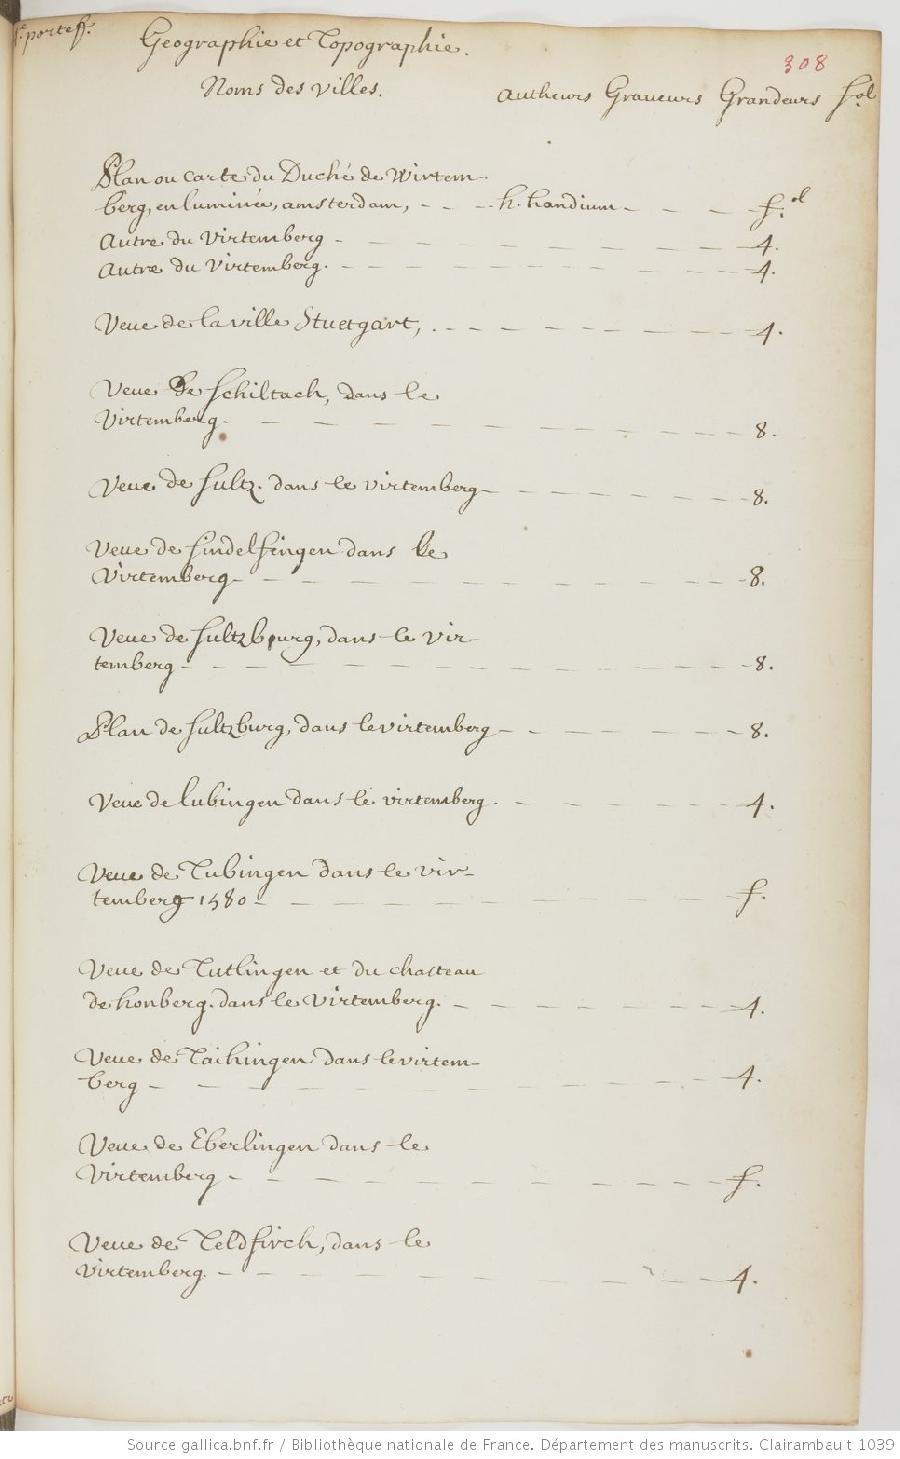 portef.
Geographie et Topographie.
308
Noms des villes.
Autheurs Graveurs Grandeurs fol
Plan ou carte du Duché de Wirtem-
berg, enluminée, amsterdam, - - - h. handium - - - - f.ol
Autre du Virtemberg - - - - - - - - 4.
Autre du Virtemberg. - - - - - - - - 4.
Veue de la ville Stuetgart, . - - - - - - - 4.
Veue de Schiltach, dans le
Virtemberg - - - - - - - - - 8.
Veue de Sultz. dans le virtemberg - - - - - - - 8.
Veue de Sindelfingen dans le
Virtemberg - - - - - - - - - 8.
Veue de Sultzbourg, dans le Vir
temberg - - - - - - - - - 8.
Plan de Sultzburg, dans le virtemberg - - - - - - - 8.
Veue de lubingen dans le virtemberg. - - - - - - 4.
Veue de Tubingen dans le vir-
temberg 1580 - - - - - - - - f.
Veue de Tutlingen et du chasteau
de honberg. dans le Virtemberg. - - - - - - - 4.
Veue de Taihingen dans le virtem-
berg - - - - - - - - - 4.
Veue de Eberlingen dans le
Virtemberg - - - - - - - - - f.
Veue de Teldfirch, dans le
Virtemberg. - - - - - - - - 4.
Source gallica.bnf.fr / Bibliothèque nationale de France. Département des manuscrits. Clairambaut 1039